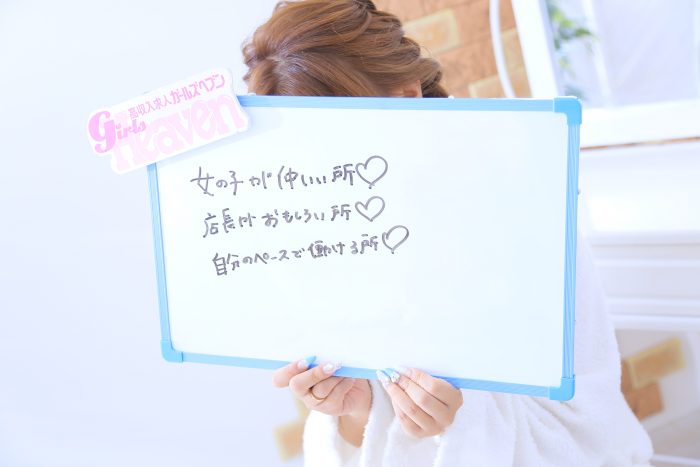 高収入求人ガールズヘブン
Girls
Heaven
女の子が仲いい所♡
店長がおもしろい所♡
自分のペースで働ける所♡